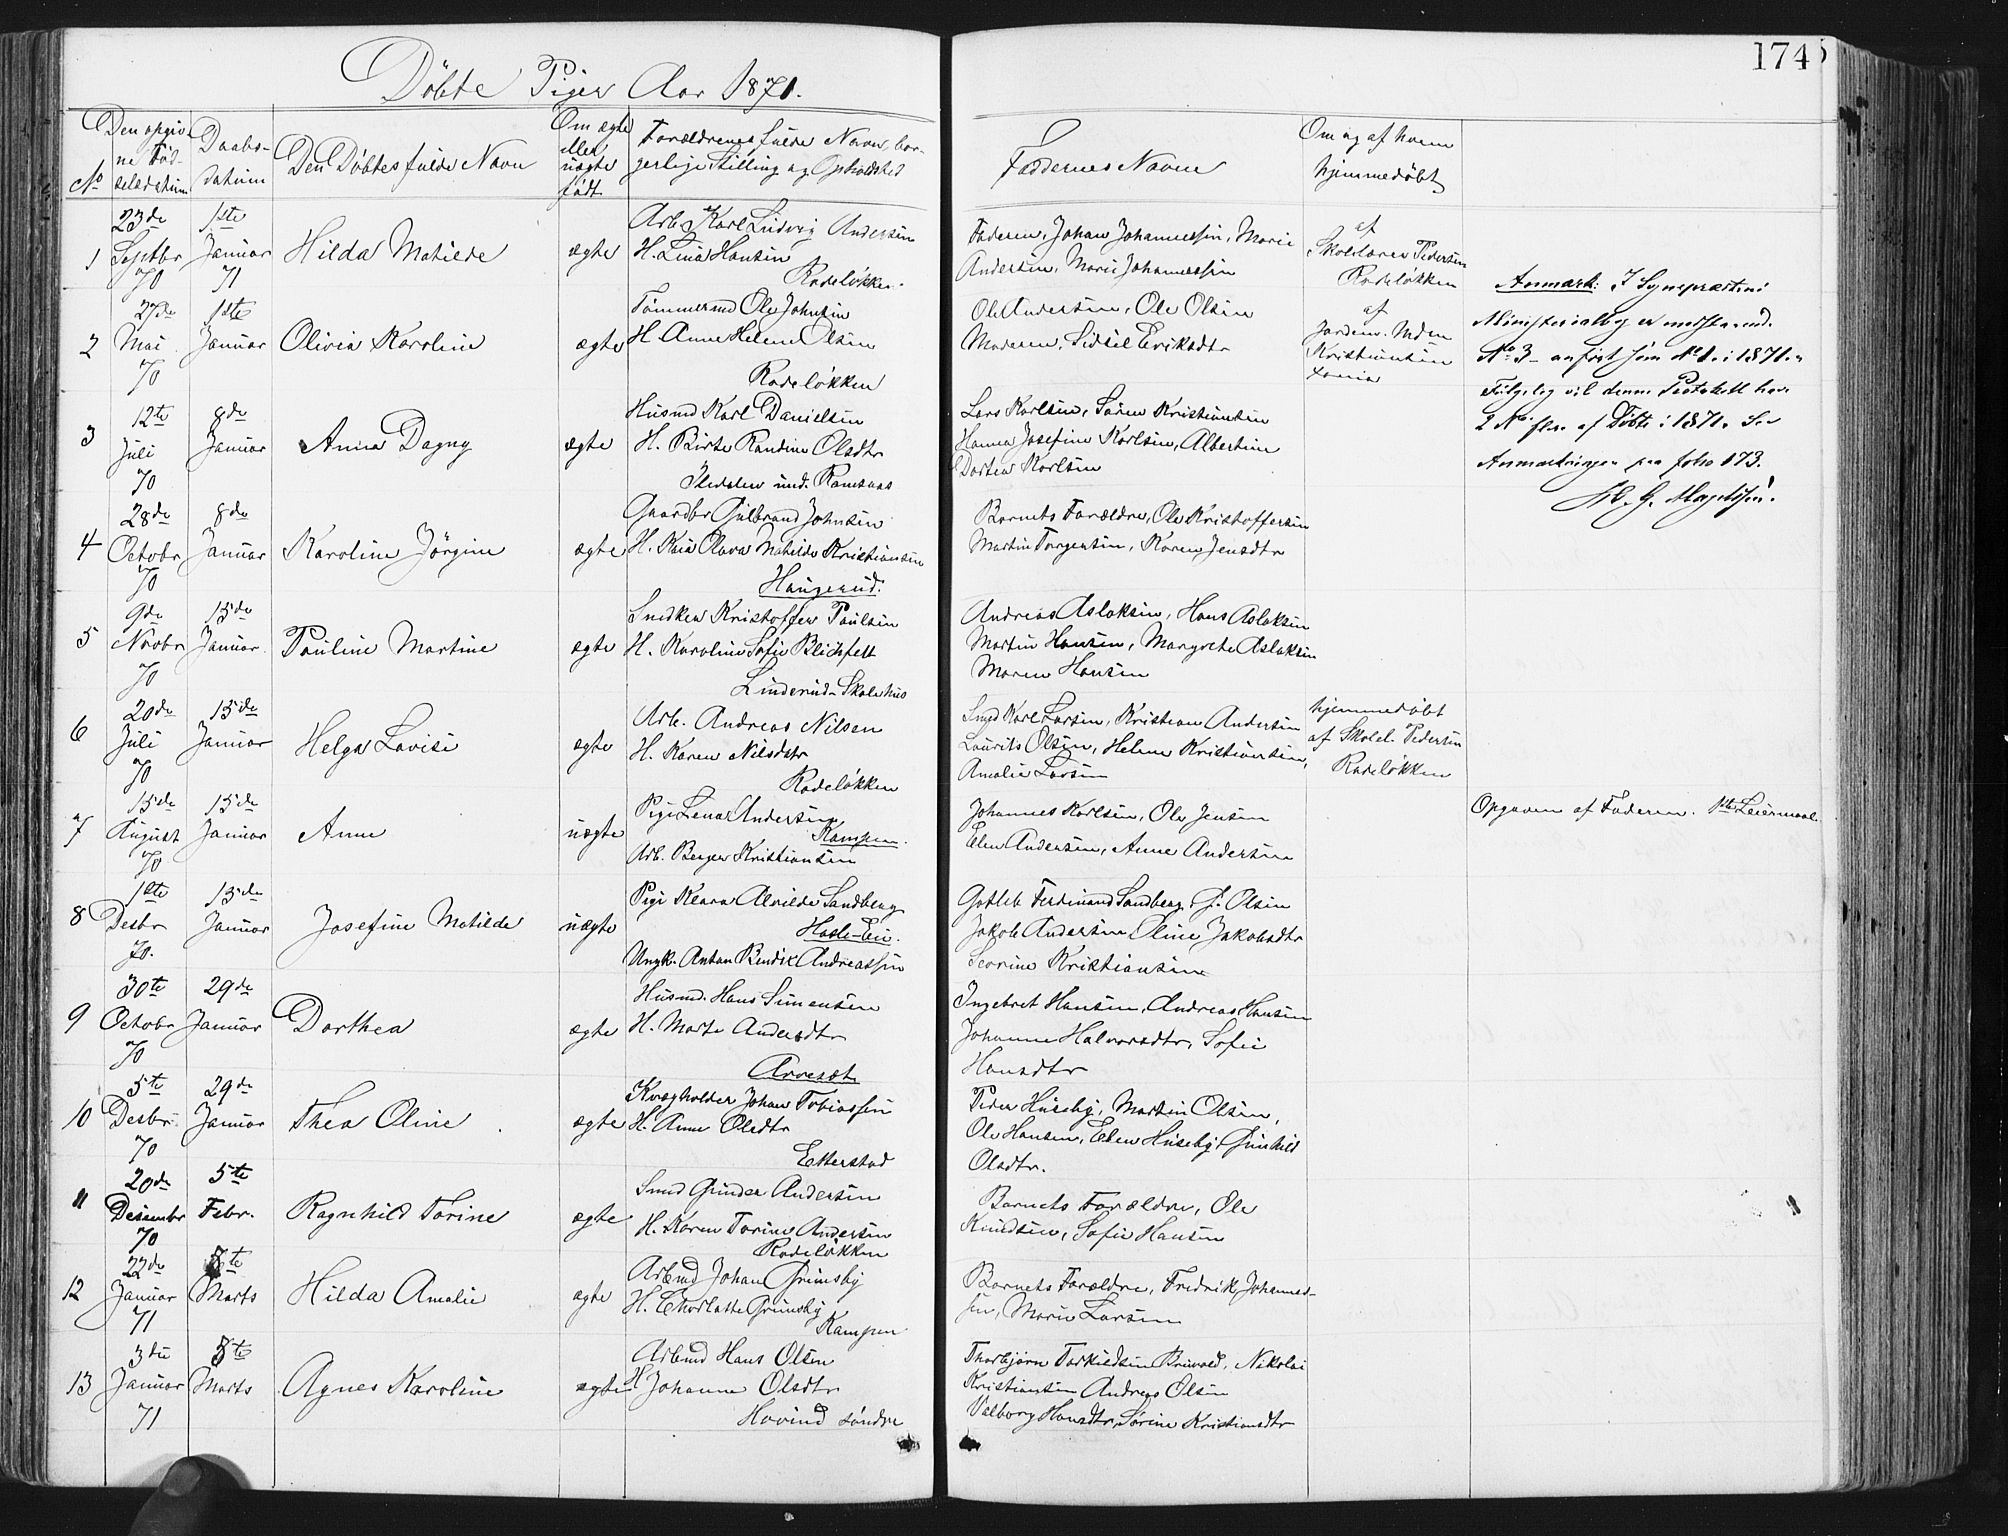 174
Döbte Piger Aar 1871.
No
Den opgivne Födselsdatum
Daabsdatum
Den Döbtes fulde Navn
Om ægte eller uægte födt
Forældrenes fulde Navn, borgerlige Stilling og Opholdsted
Faddernes Navne
Om og af hvem hjemmedøbt
1 23de Septbr 70
1ste Januar 71
Hilda Matilde
ægte
Arb. Karl Ludvig Andersen
H. Lina Hansen
Rodeløkken.
Faderen, Johan Johannessen, Marie
Andersen, Marie Johannessen
af
Skolelærer Pedersen
Rodeløkken
2 27de Mai 70
1ste Januar
Olivia Karoline
ægte
Tømmermd Ole Johnsen
H. Anne Helene Olsen
Rodeløkken
Ole Andersen, Ole Olsen
Moderen, Sidsel Eriksdtr
af
Jordem.
Kristiansen
3 12te Juli 70
8de Januar
Anna Dagny
ægte
Husmd Karl Danielsen
H. Birte Randine Olsdtr
Lars Karlsen, Søren Kristiansen
Hanna Josefine Karlsen, Albertine
Dortea Karlsen
Anmærk: I Sognepræstens
Ministerialbog er nedstaaend.
No 3 anført som No 1 i 1871.
Følgelig vil denne Protokoll have
2 No fler af Döbte i 1871. Se
Anmærkningen paa folio 173.
4 28de Octobr 70
8de Januar
Karoline Jörgine
ægte
Gaardbr Gulbrand Johnsen
H. Kaia Olava Matilde Kristiansen
Haugerud.
Barnets Forældre, Ole Kristoffersen
Martin Torgersen, Karen Jensdtr
5 9de Novbr 70
15de Januar
Pauline Martine
ægte
Snedker Kristoffer Paulsen
H. Karoline Sofie Blichfelt
Linderud-Skolehus
Andreas Aslaksen, Hans Aslaksen
Martin Hansen, Margrete Aslaksen
Maren Hansen
6 20de Juli 70
15de Januar
Helga Lovise
ægte
Arb. Andreas Nilsen
H. Karen Nilsdtr
Rodeløkken
Smed Karl Larsen, Kristian Andersen
Laurits Olsen, Helene Kristiansen,
Amalie Larsen
hjemmedøbt
af Skolel. Pedersen
Rodeløkken
7 15de August 70
15de Januar
Anne
uægte
Pige Lena Andersen
Kampen.
Arb. Berger Kristiansen
Johannes Karlsen, Ole Jensen
Elen Andersen, Anne Andersen
Opgaven af Faderen. 1ste Leiermaal.
8 1ste Desbr 70.
15de Januar
Josefine Matilde
uægte
Pige Klara Alvilde Sandberg
Hasle-Eie.
Ungk. Anton Bendix Andreassen
Gotleb Ferdinand Sandberg, G. Olsen
Jakob Andersen, Oline Jakobsdtr
Severine Kristiansen
9 30te Octobr 70
29de Januar
Dorthea
ægte
Husmd. Hans Simensen
H. Marte Andersdtr
Arvesæt
Ingebret Hansen, Andreas Hansen
Johanne Halvorsdtr, Sofie
Hansdtr
10 5te Desbr. 70
29de Januar
Thea Oline
ægte
Kvægholder Johan Tobiassen
H. Anne Olsdtr
Etterstad
Peder Huseby, Martin Olsen,
Ole Hansen, Elen Huseby, Gunhild
Olsdtr.
11 20de Desember 70
5te Febr.
Ragnhild Torine
ægte
Smed Gunder Andersen
H. Karen Torine Andersen
Rodeløkken
Barnets Forældre, Ole
Knudsen, Sofie Hansen
12 22de Januar 71
5te Marts
Hilda Amalie
ægte
Arbmd Johan Grimsby
H. Charlotte Grimsby
Kampen
Barnets Forældre, Fredrik Johannes-
sen, Marie Larsen
13 3die Januar 71
5te Marts
Agnes Karoline
ægte
Arbmd Hans Olsen
H. Johanne Olsdtr
Hovind søndre
Thorbjørn Torkildsen Brüvold, Nikolai
Kristiansen Andreas Olsen
Valborg Hansdtr, Sørine Kristiansdtr